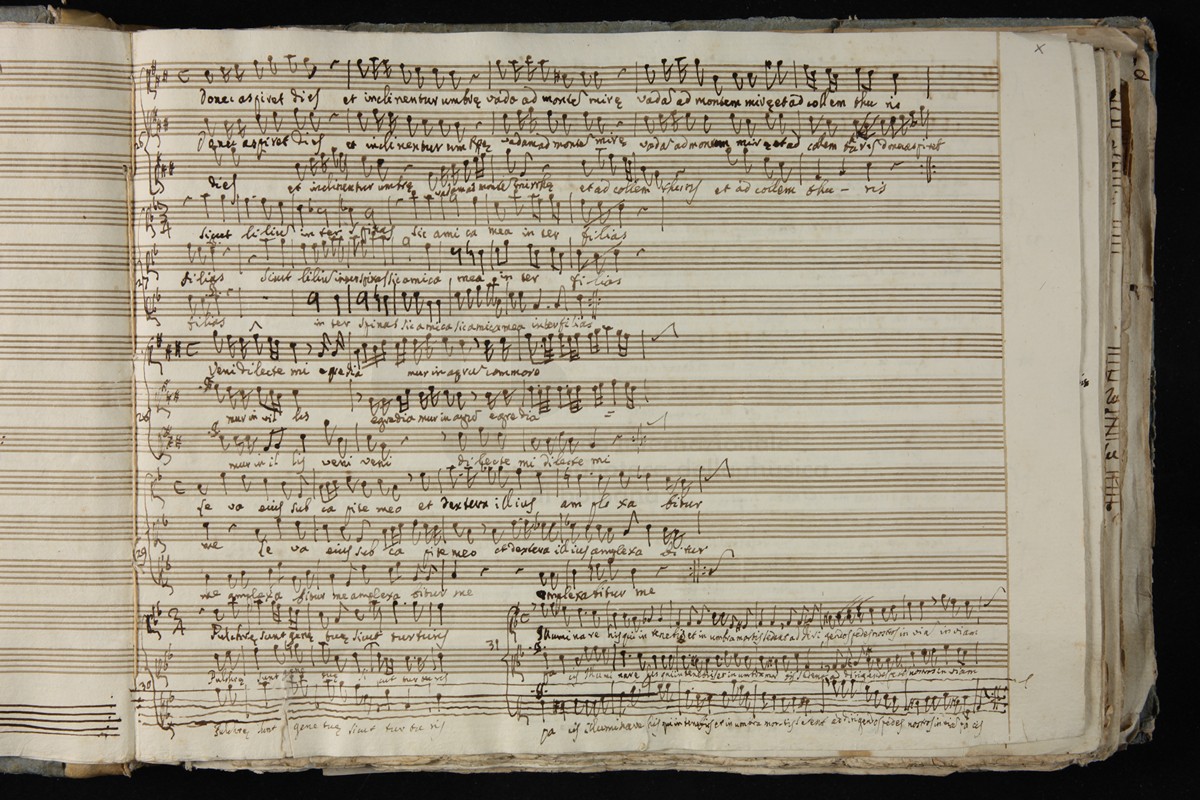 donec aspiret dies et inclinentur umbrę vada ad montē mirę vadā ad montem mirę et ad colem thu ris
Donec aspiret dies et inclinentur umbrę vadam ad montē mirę vadā ad montem mirę et ad colem turis donec aspiret
dies et inclinentur umbrę vadam ad montē mirrhę et ad collem thuris et ad collem thu - ris
Sicut liliū inter spinas sic amica mea inter filias
27
filias sicut liliū inter spinas sic amica mea inter filias
filias inter spinas sic amica sic amica mea inter filias
Veni dilecte mi egredia mur in agrū commoro
28
mur in vil lis egredia mur in agrō egredia
mur in il lis veni veni dilecte mi dilecte mi
Le va eius sub ca pite meo et dextera illius am ple xa bitur
29
me Le va eius sub ca pite meo et dextera illius amplexa bitur
me amplexa bitur me amplexa bitur me amplexabitur me
Pulchrę sunt genę tuę sicut turturis
31
Illuminare his qui in tenebris et in umbra mortis sedent ad diri gendos pedes nostros in viā in viam
30
Pulchrę sunt genę tuę sicut turturis
Pulchrę sunt genę tuę sicut tur tu ris
pa cis Illuminare his qui in tenebris et in umbra mortis sedent ad dirigendos pedes nostros in viā pa cis